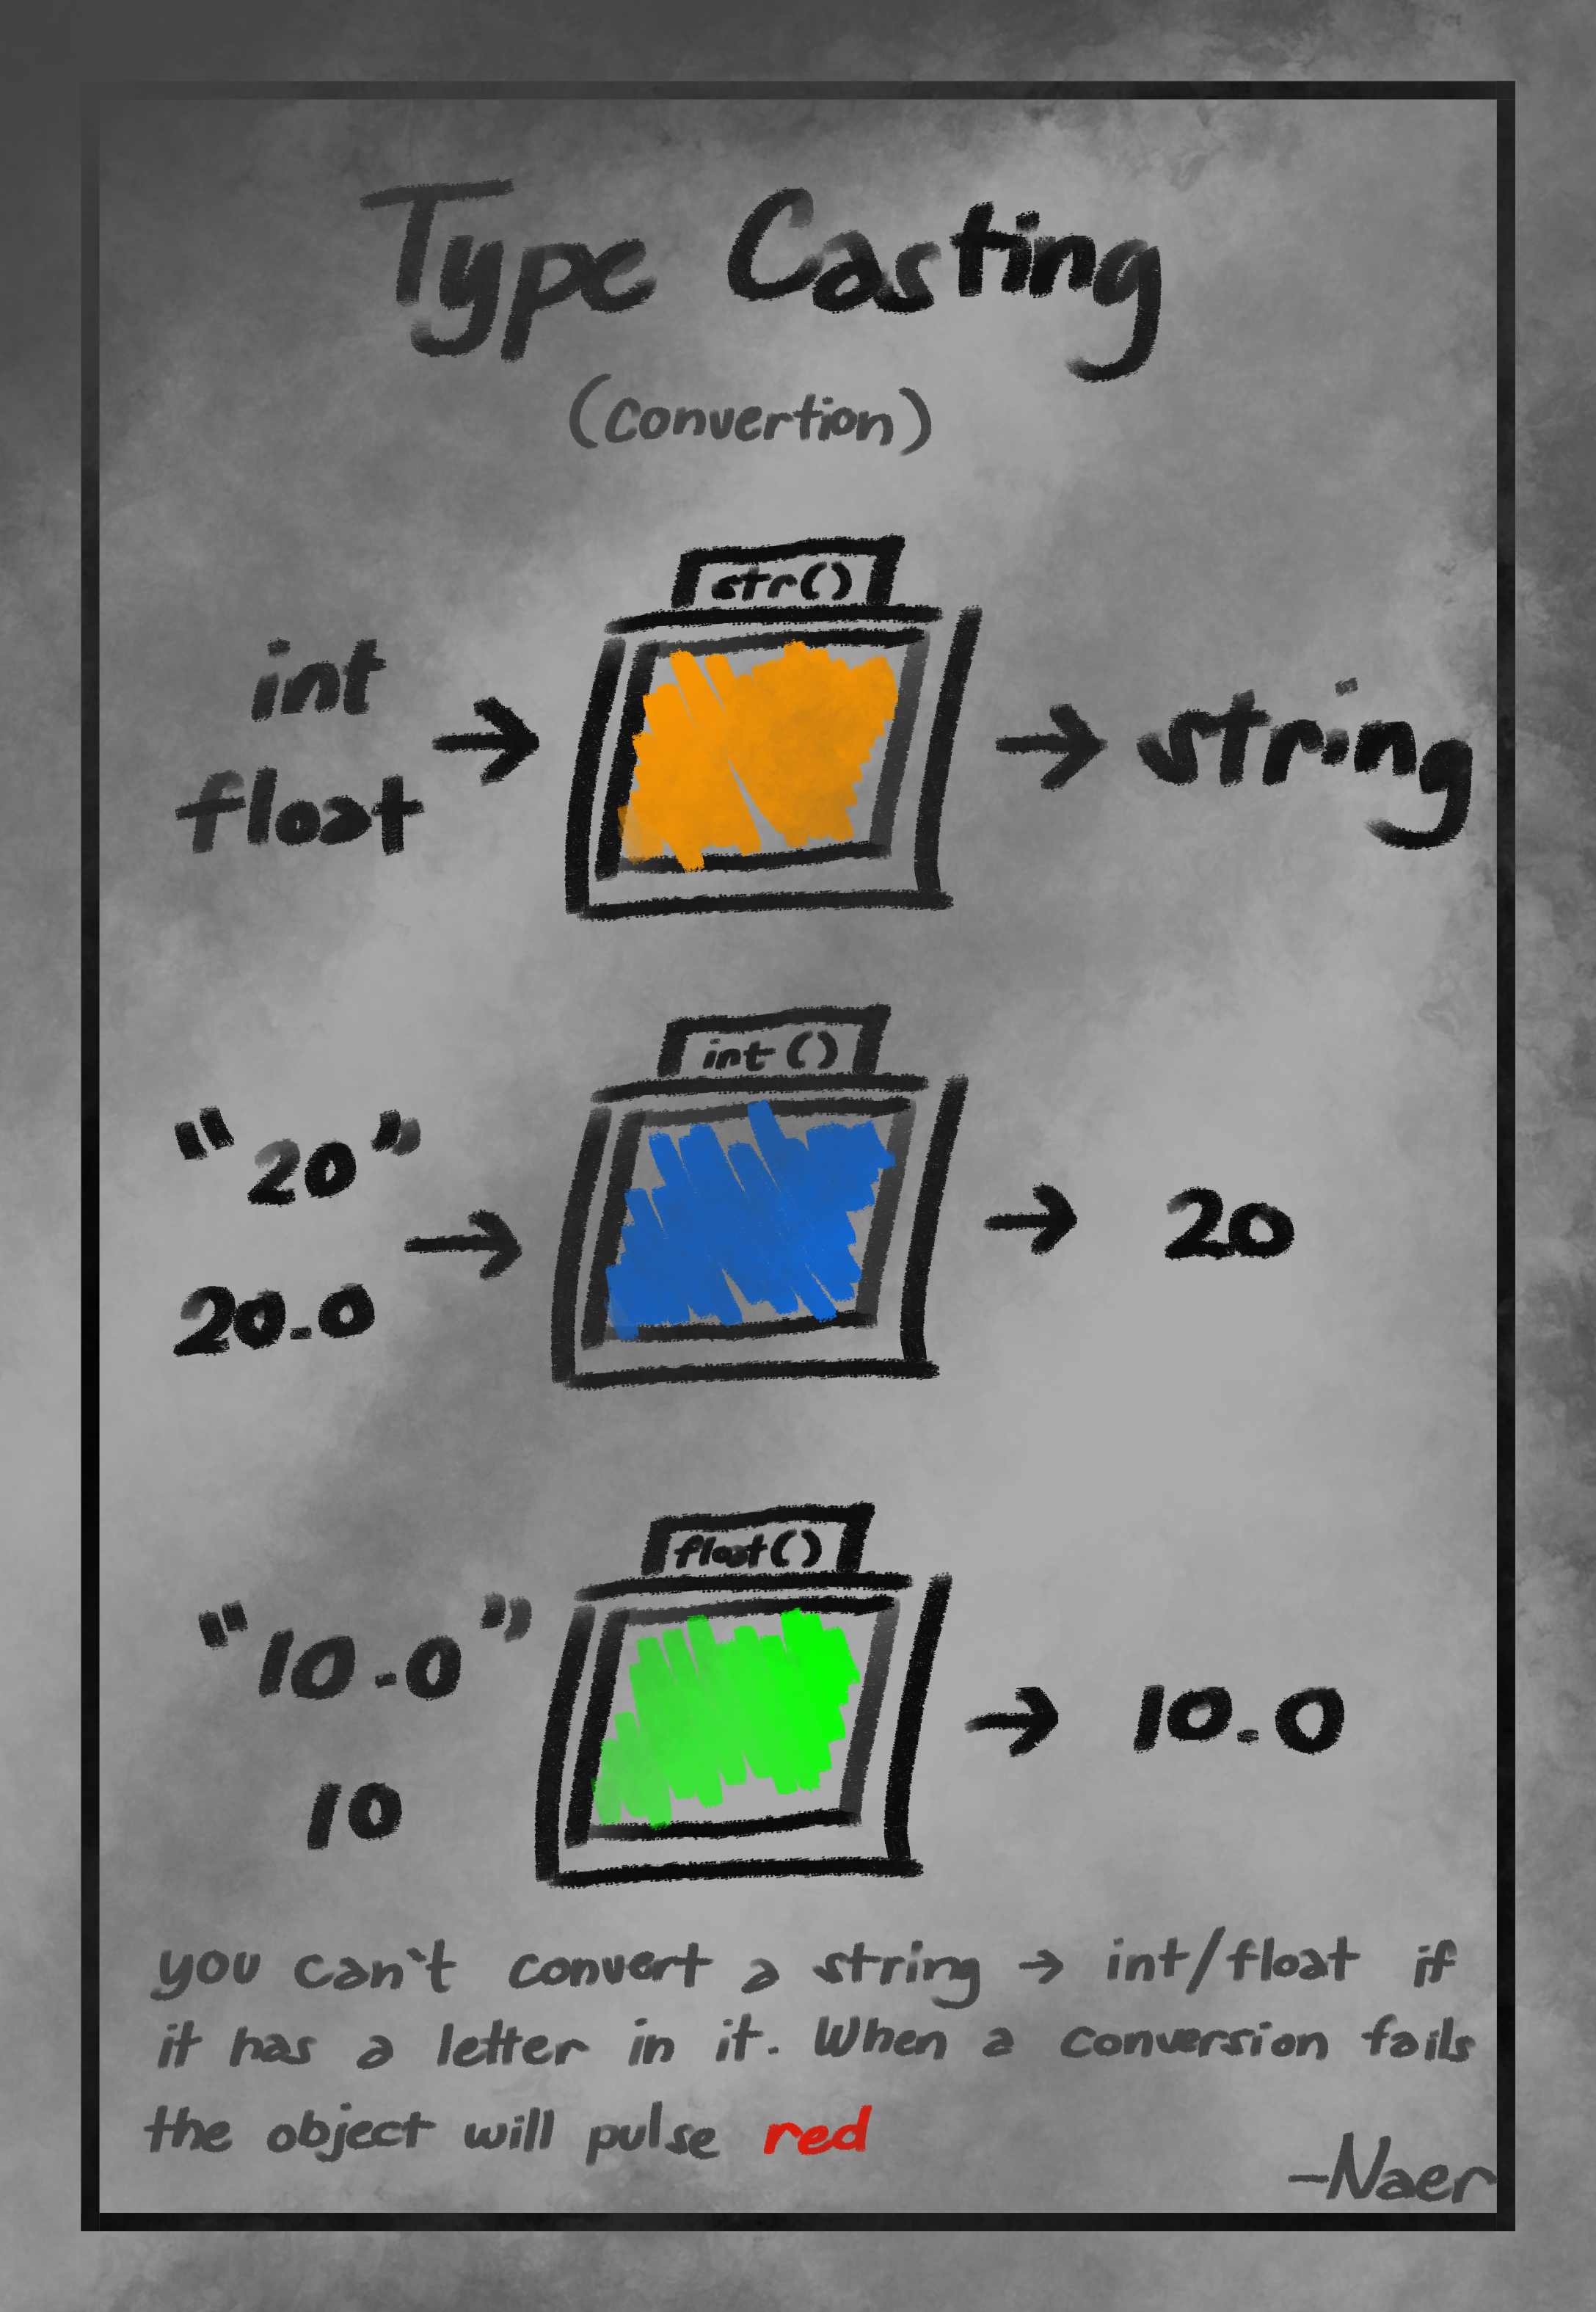 Type Casting
(Convertion)
str()
int → → string
float
int ()
"20"
→ → 20
20.0
float()
"10.0" → 10.0
10
you can't convert a string → int/float if
it has a letter in it. When a conversion fails
the object will pulse red
-Naer